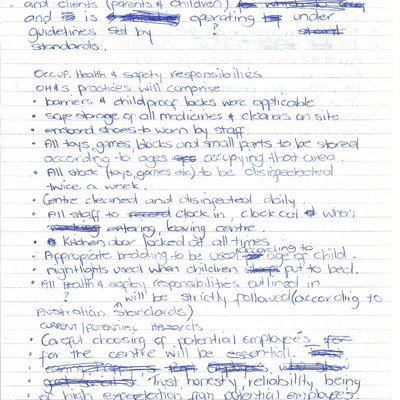 • and clients (parents & children)
and is operating under
guidelines set by ?
standards.
Occup. Health & safety responsibilities
OH&S practices will comprise
• barriers & childproof locks were applicable
• safe storage of all medicines & cleaners on site
• enclosed shoes to worn by staff
• All toys, games, blocks and small parts to be stored
according to ages occupying that area.
• All stock (toys, games etc) to be disinfected
twice a week.
• Centre cleaned and disinfected daily.
• All staff to clock in, clock out when
entering, leaving centre.
• Kitchen door locked at all times.
• Appropiate bedding to be used according to age of child.
• nightlights used when children put to bed.
• All Health & safety responsibilities outlined in
? will be strictly followed (according to
Australian Standards)
CURRENT/POTENTIAL HAZARDS
• Careful choosing of potential employee's
for the centre will be essential.
Trust, honesty, reliability being
of high expectation from potential employees.